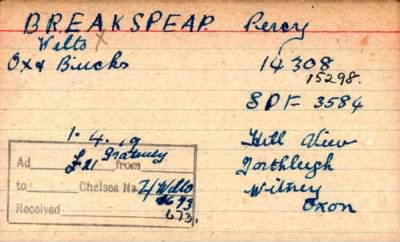 BREAKSPEAR Percy
Wilts x
Ox & Bucks 14308
15298.
SPF 3584
1.4.19
£21 Gratuity
Ad from
to Chelsea No. Z/Wilts
Received 673.
Hill View
Northleigh
Witney
Oxon